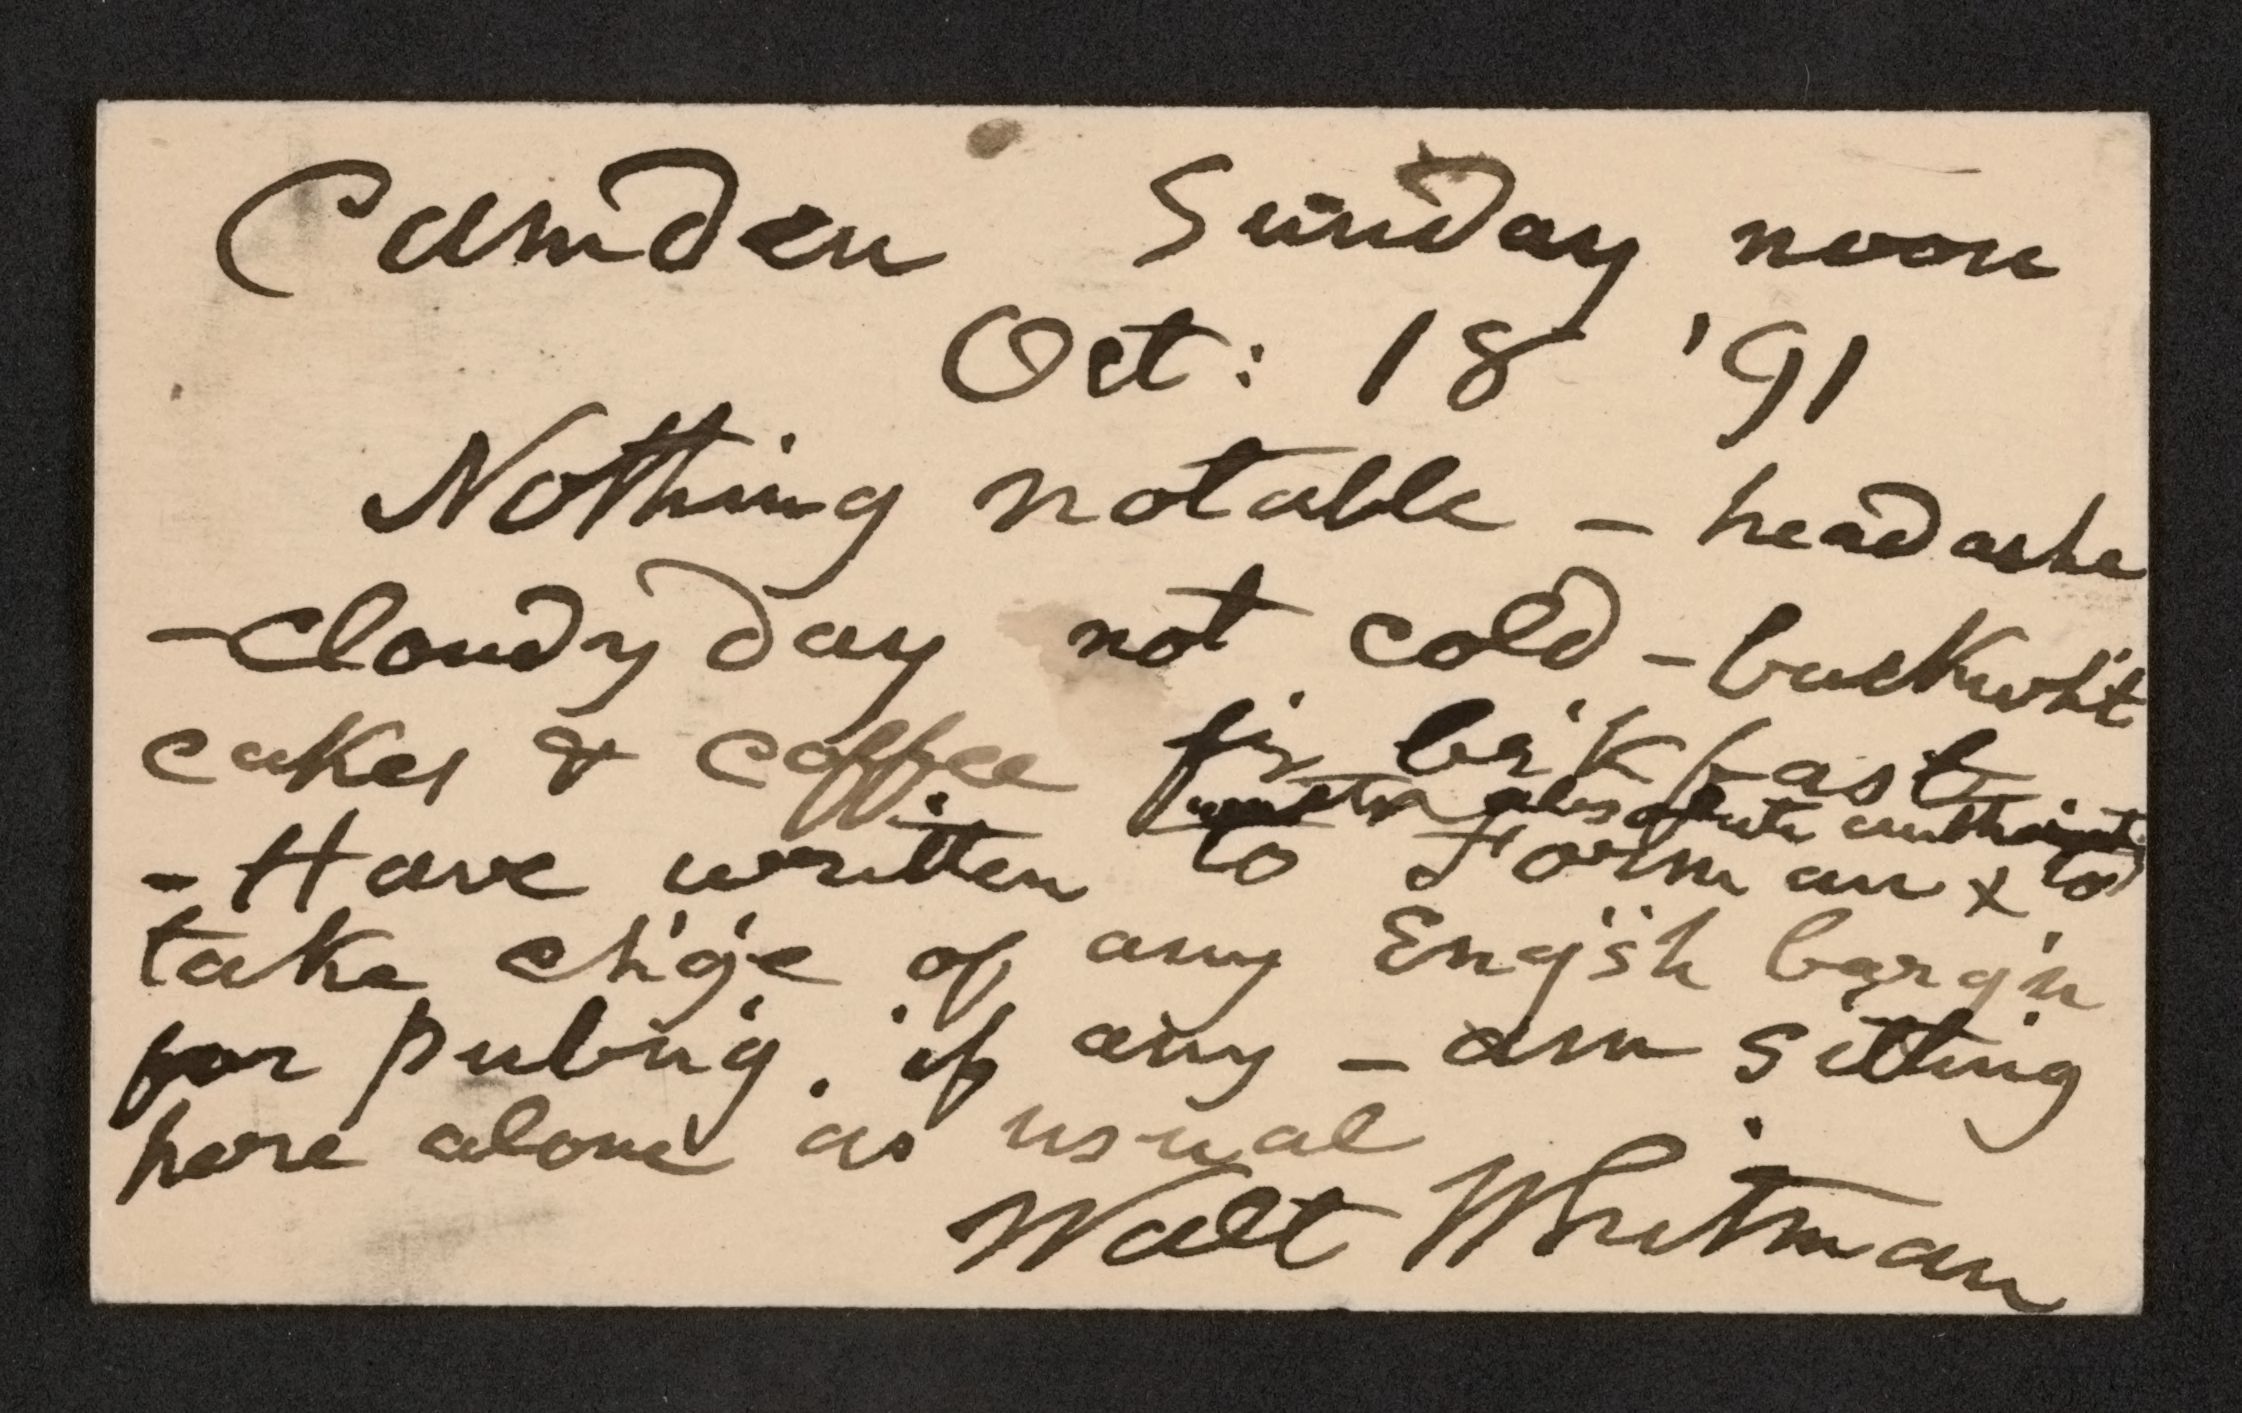 Camden Sunday noon
Oct: 18 '91
Nothing notable – headache
– cloudy day not cold – buckwh't
cakes & coffee for br'kfast
with absolute authority
– Have written to Forman x to
take ch'g'e of any Eng'sh barg'n
for pub'n'g, if any – am sitting
here alone as usual
Walt Whitman